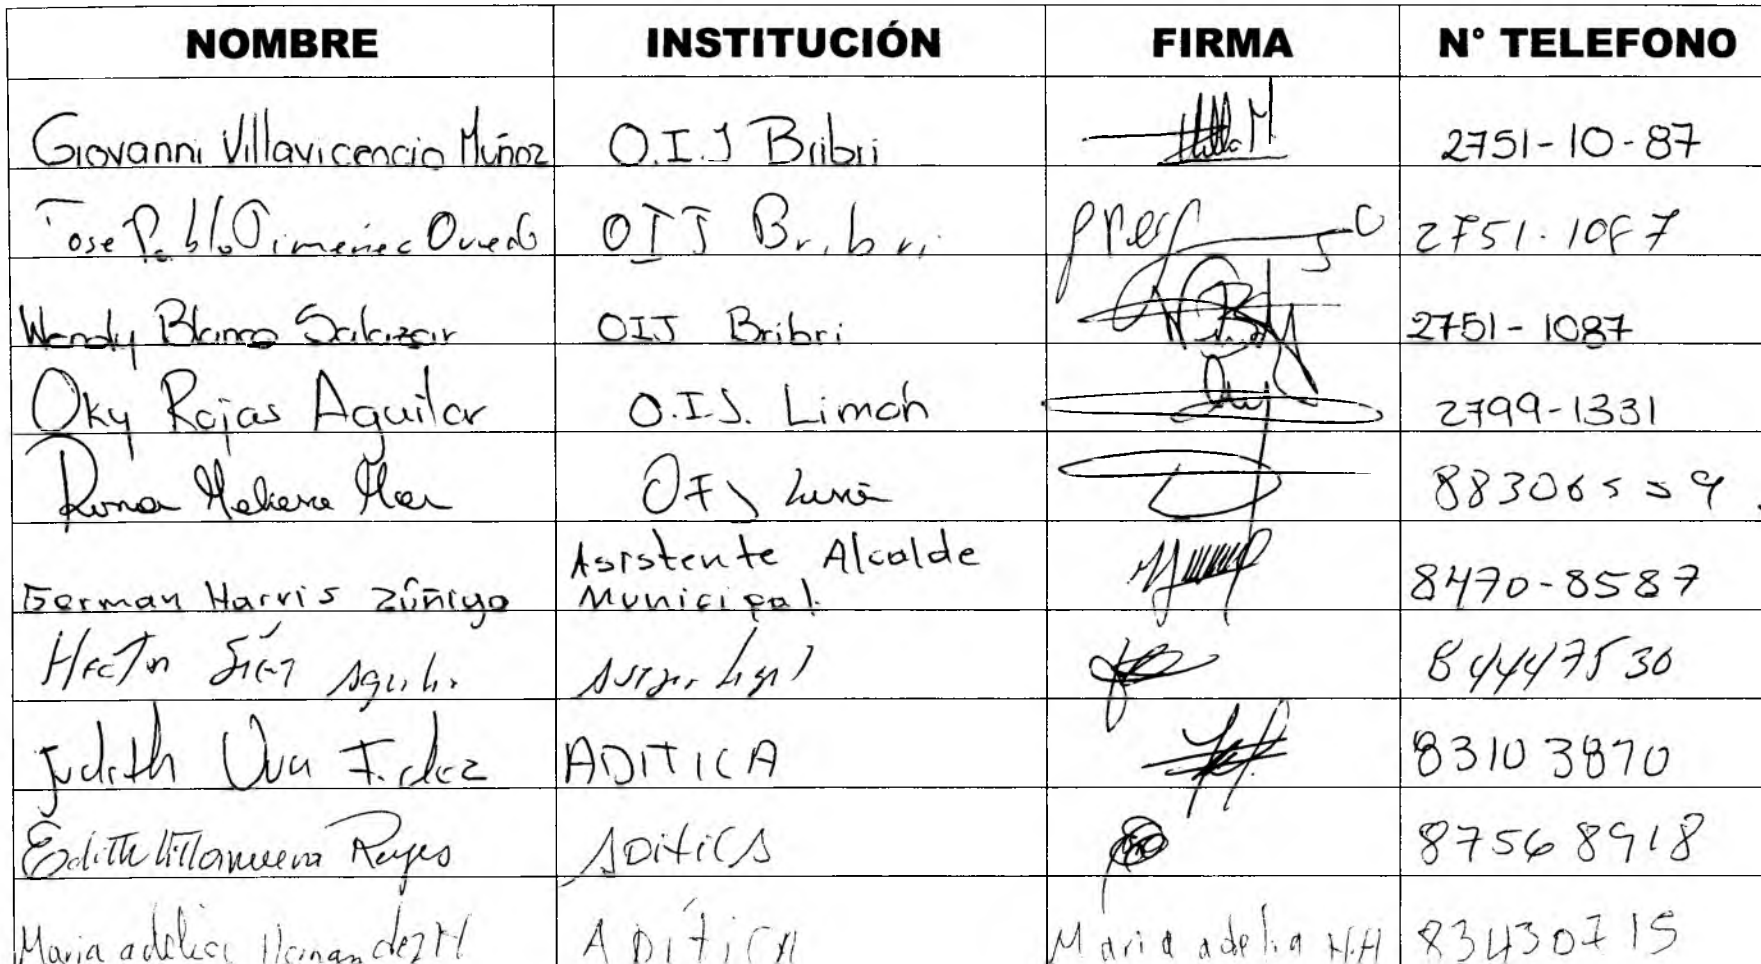 NOMBRE INSTITUCIÓN FIRMA N° TELEFONO
Giovanni Villavicencio Muñoz O.I.J Bribri 2751-10-87
Jose Pablo Jimenez Oviedo OIJ Bribri 2751.1087
Wendy Blanco Salazar OIJ Bribri 2751-1087
Oky Rojas Aguilar O.I.J. Limon 2799-1331
OIJ 88306559.
Asistente Alcalde
German Harris Zúñiga Municipal. 8470-8587
Hector Aguilar 84447530
Judith ADITICA 83103870
Edith Villanueva Reyes ADITICA 87568918
Maria adelia Hernandez H ADITICA Maria adelia H.H 83430715